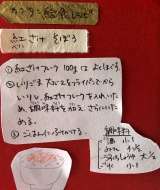 カンタン給食レシピ
紅ざけそぼろ
① 紅ざけフレーク100gは よくほぐす
② しいりごま 大さじ1をフライパンで
いり、紅ざけフレークを入れいた
め、調味料を加え さらにいた
める。
③ ごはんにふりかける。
調味料
酒 小1
みりん 小
うすしょうゆ 小
水 小1